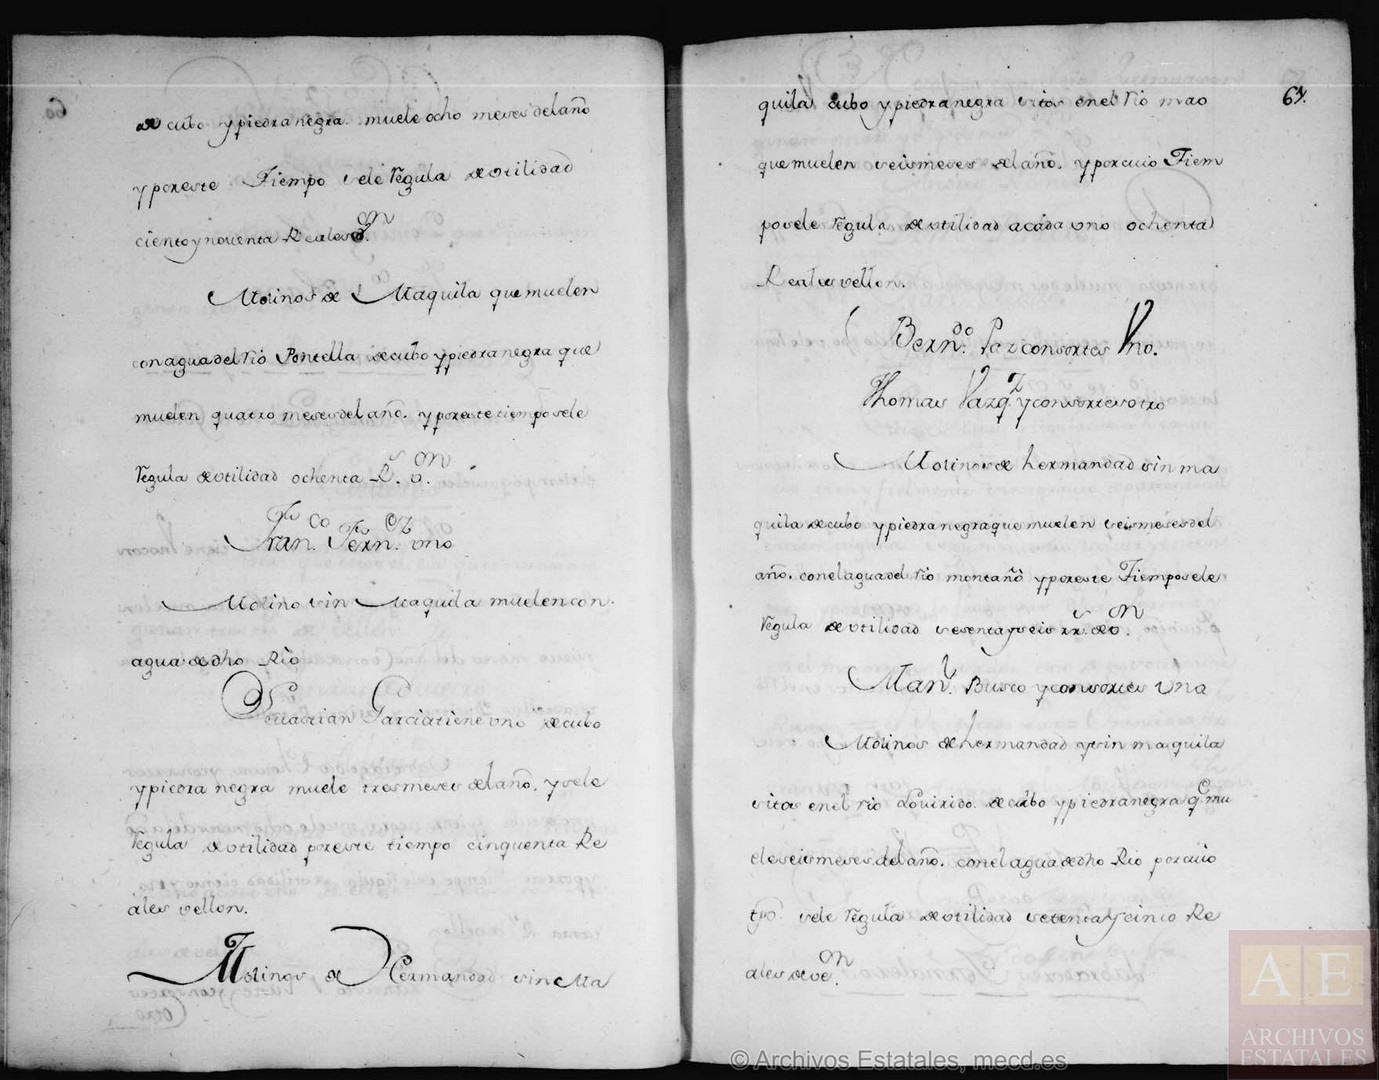 de cubo y piedra negra muele ocho meses del año
y por este Tiempo se le Regula de utilidad
ciento y noventa Reales v.on
Molinos de Maquila que muelen
con agua del rio Pontella de cubo y piedra negra que
muelen quatro meses del año. y por este tiempo se le
Regula de utilidad ochenta R.s v.on
Fran.co Fern.ez uno
Molino sin Maquila muelen con
agua de dho Rio
Sevastian Garcia tiene uno de cubo
y piedra negra muele tres meses del año. y se le
Regula de utilidad por este tiempo cinquenta Re
ales vellon.
Molinos de Hermandad sin Ma
61.
quila cubo y piedra negra sitos en el rio mao
que muelen seis meses del año. y por cuio Tiem
po se le Regula de utilidad a cada uno ochenta
Reales vellon.
Bern.do Paz consortes Uno.
Thomas Vazq.z y consortes otro
Molinos de hermandad sin ma
quila de cubo y piedra negra que muelen seis meses del
año. con el agua del rio montaño y por este Tiempo se le
Regula de utilidad sesenta y seis rr.s de v.on
Man.l Busco y consortes Una
Molinos de hermandad y sin maquila
sitos en el rio Louxido de cubo y piedra negra q.e mu
ele seis meses del año. con el agua de dho Rio por cuio
tpo. se le Regula de utilidad setenta y cinco Re
ales de ve.on
A E
ARCHIVOS
ESTATALES
© Archivos Estatales, mecd.es